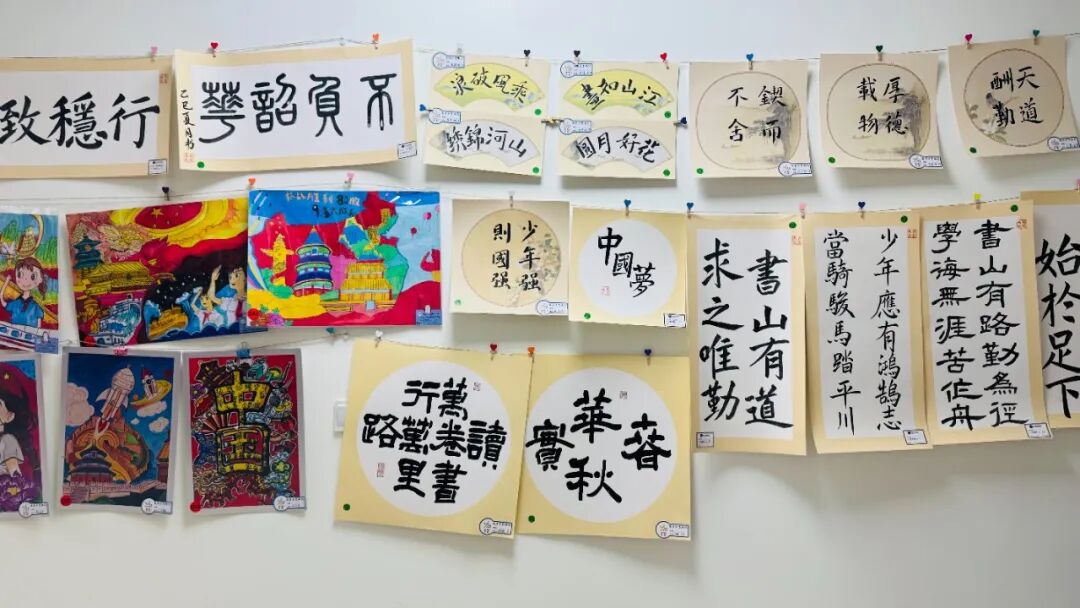 行穩致
不負韶華
乙巳夏月書
乘風破浪
江山如畫
山河錦繡
花好月圓
鍥而
不舍
厚德
載物
天道
酬勤
少年强
則國强
中國夢
書山有道
求之唯勤
少年應有鴻鵠志
當騎駿馬踏平川
書山有路勤為徑
學海無涯苦作舟
始於足下
讀
萬卷書
行萬里
路
春華秋實